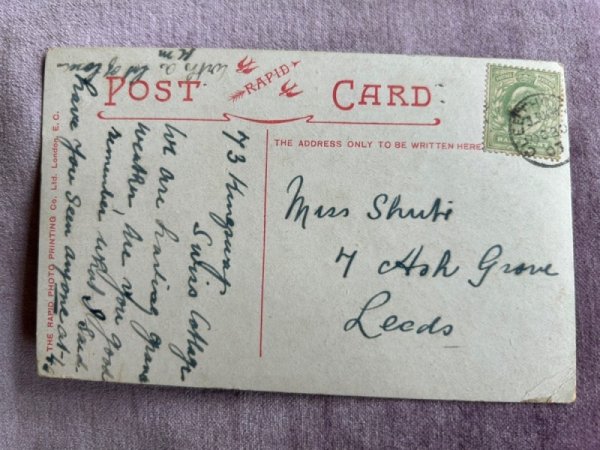 POST CARD
RAPID
THE ADDRESS ONLY TO BE WRITTEN HERE
THE RAPID PHOTO PRINTING Co., Ltd. London, E.C.
73
Swiss Cottage
We are having grand
weather. Are you good
remember what I said
have you seen anyone at
with a lot of love
Miss Shute
7 Ash Grove
Leeds